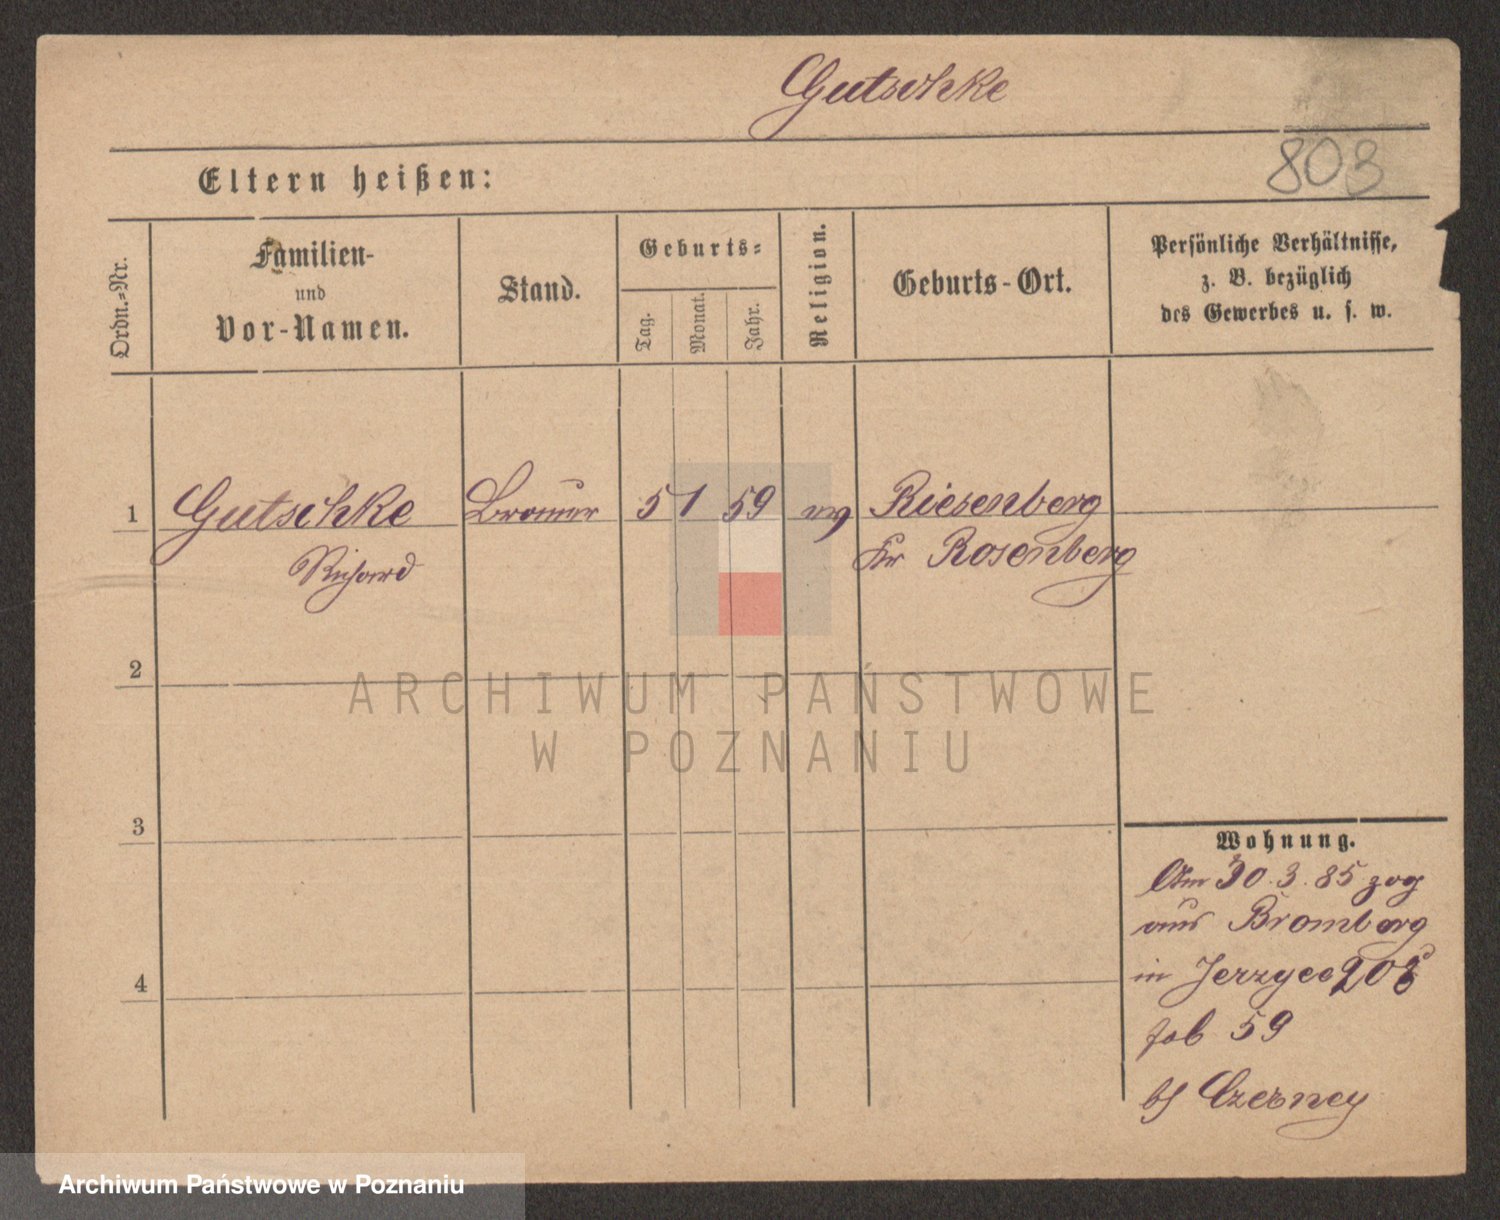 Gutschke
803
Eltern heißen:
Ordn.=Nr.
Familien-
und
Vor-Namen.
Stand.
Geburts=
Tag.
Monat.
Jahr.
Religion.
Geburts-Ort.
Persönliche Verhältnisse,
z. B. bezüglich
des Gewerbes u. s. w.
1 Gutschke Brauer 5 1 59 ev Riesenberg
Richard Kr Rosenberg
2
3
4
Wohnung.
Am 30.3.85 zog
aus Bromberg
in Jerzyce 208
59
bei Czerney
ARCHIWUM PAŃSTWOWE
W POZNANIU
Archiwum Państwowe w Poznaniu